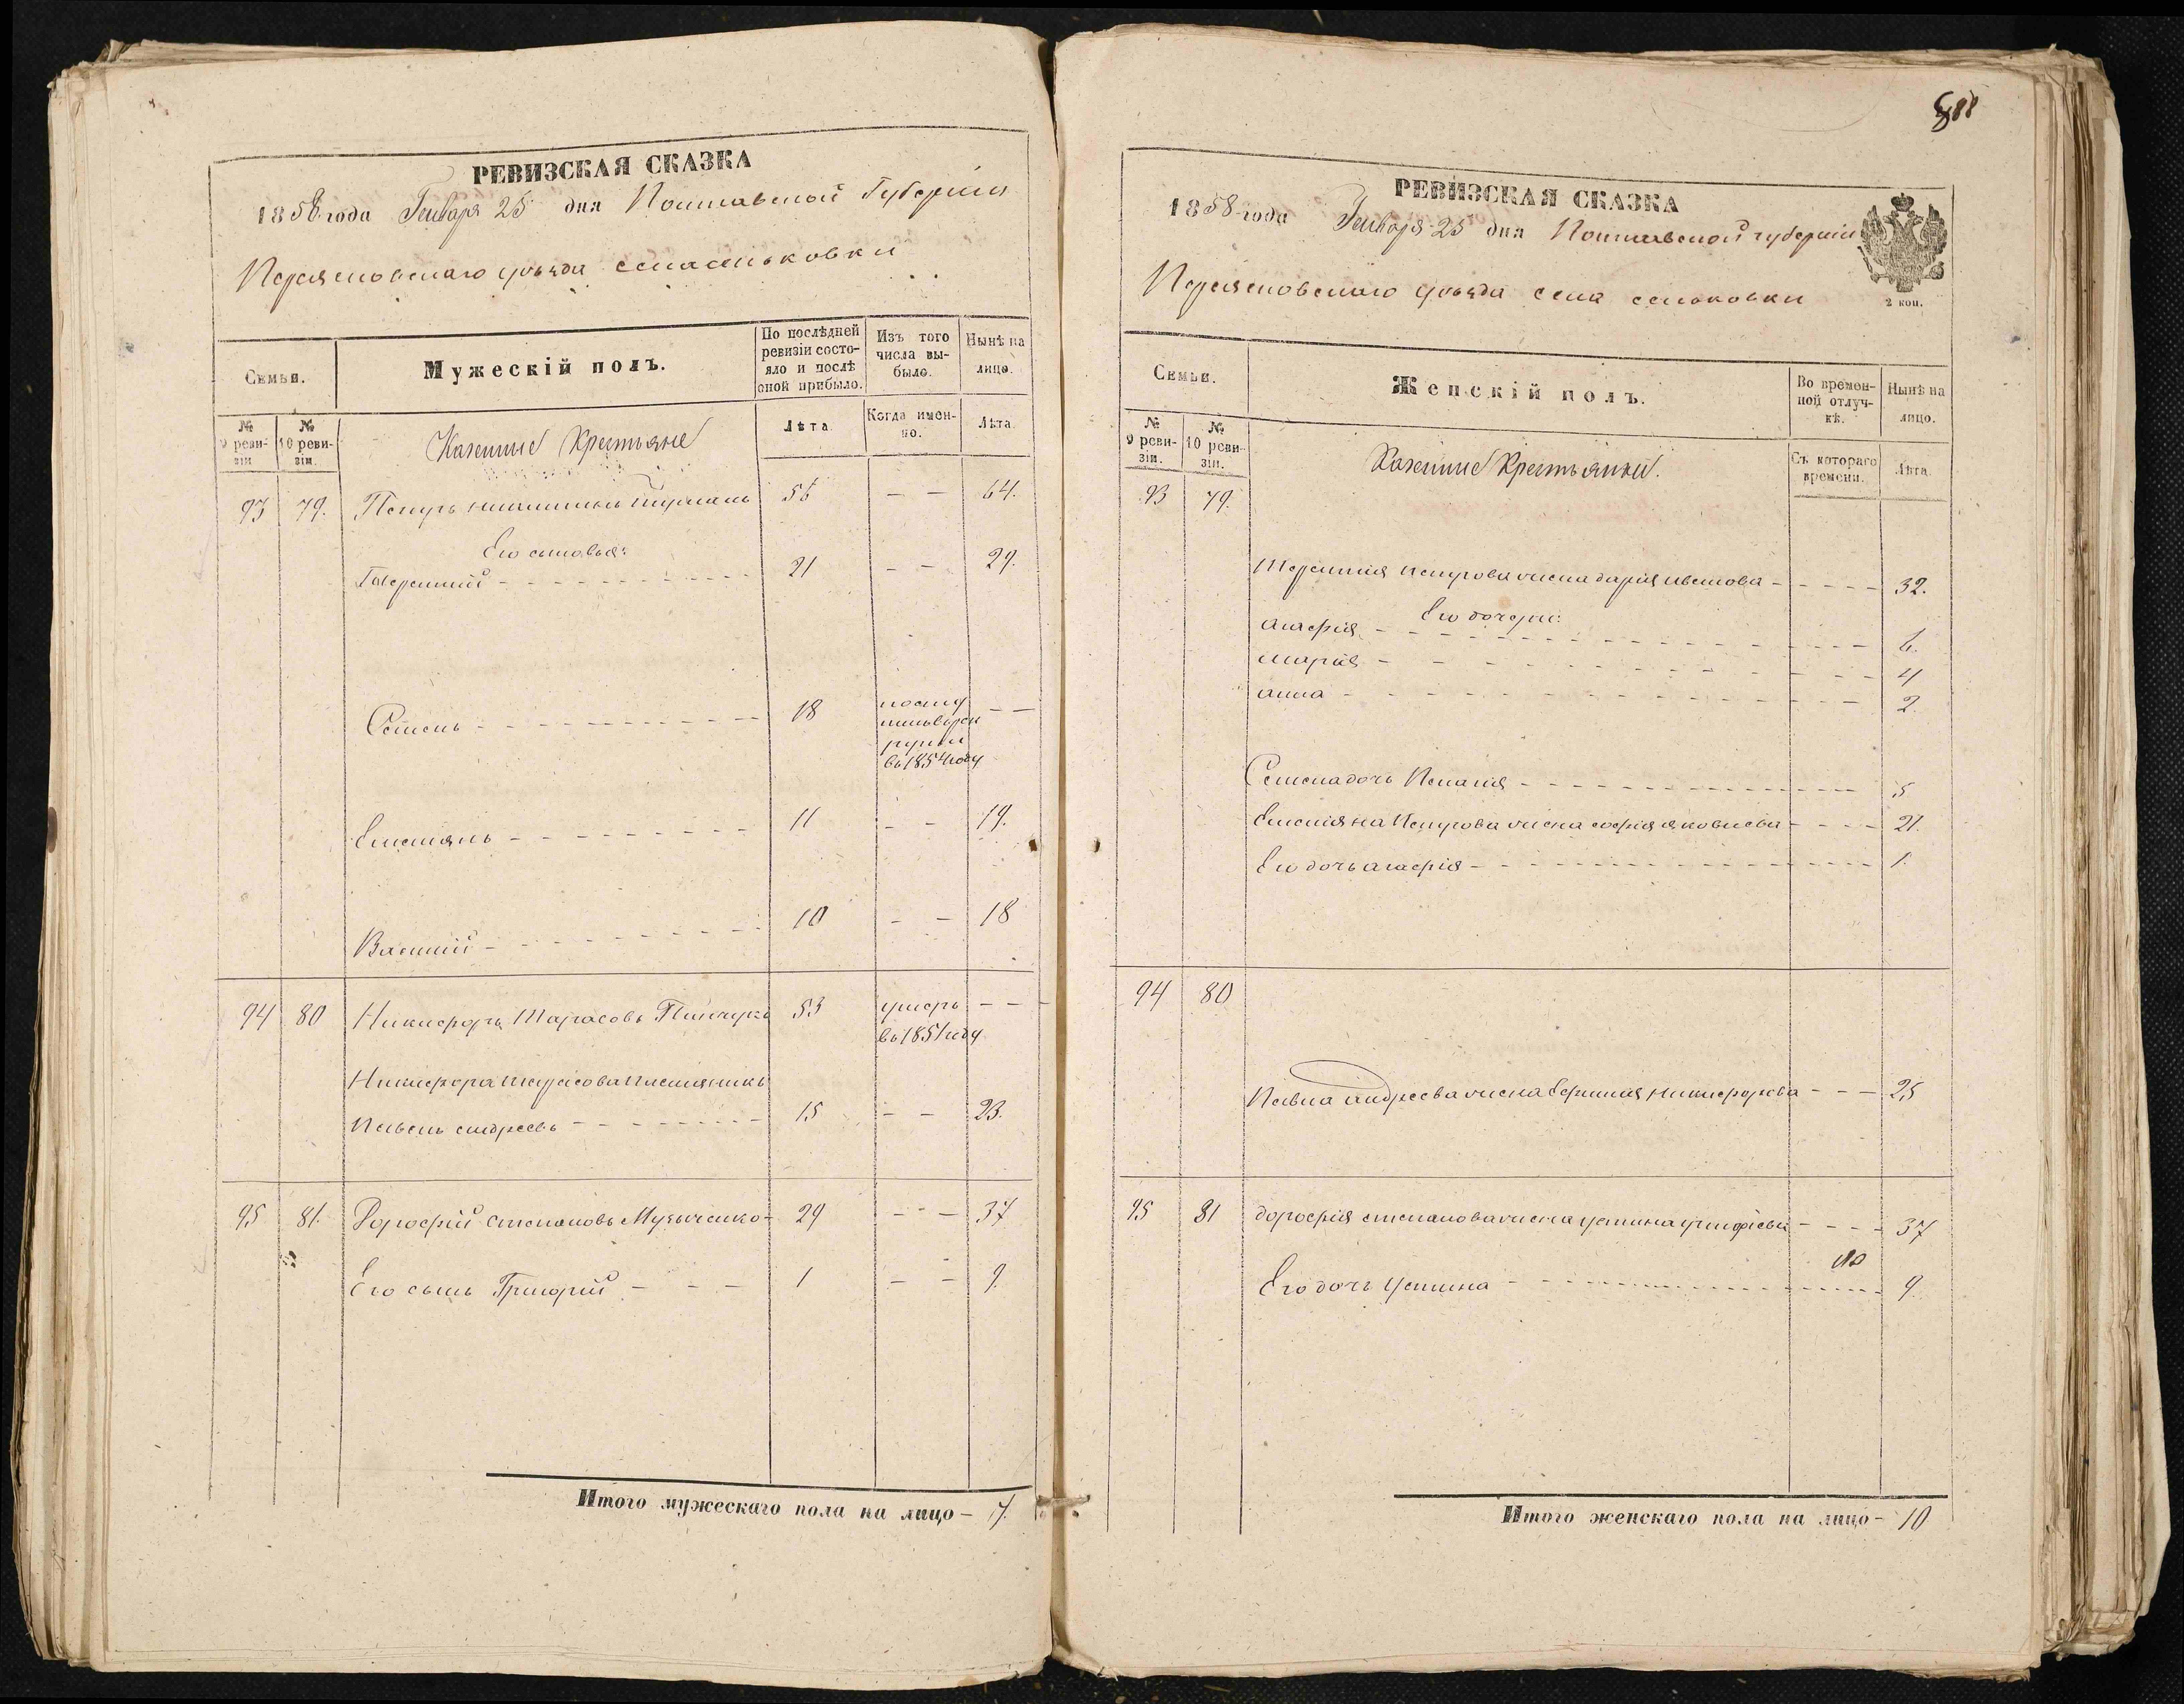 РЕВИЗСКАЯ СКАЗКА
1858 года Генваря 25 дня Полтавской Губерніи
Переясловскаго уѣзда села сеньковки
Семьи.
Мужескій полъ.
По послѣдней ревизіи состояло и послѣ оной прибыло.
Изъ того числа выбыло.
Нынѣ на лицо.
№ 9 ревизіи.
№ 10 ревизіи.
Казенные Крестьяне
Лѣта.
Когда именно.
Лѣта.
93 79. Петръ 56 — — 64.
Его сыновья:
21 — — 29.
Семенъ 18 въ 1854 году — —
Емельянъ 11 — — 19.
Василий 10 — — 18
94 80 Никифоръ Тарасовъ 53 умеръ въ 1851 году — —
Никифора тарасова племянникъ
Павелъ андреевъ 15 — — 23.
95 81. Дорофий степановъ Музыченко 29 — — 37
Его сынъ Григорий 1 — — 9.
Итого мужескаго пола на лицо — 7.
РЕВИЗСКАЯ СКАЗКА
1858 года Генваря 25 дня Полтавской губерніи
2 коп.
Переясловскаго уѣзда села сеньковки
Семьи.
Женскій полъ.
Во временной отлучкѣ.
Нынѣ на лицо.
№ 9 ревизіи.
№ 10 ревизіи.
Казенные Крестьянки.
Съ котораго времени.
Лѣта.
93 79.
петрова жена дарія иванова 32.
Его дочери:
агафія 6.
марія 4
анна 2.
Семена дочь 5
Емеліяна Петрова жена софія яковлева 21.
Его дочь агафія 1.
94 80
Павла андреева жена Евфимія никифорова 25
95 81 дорофія степанова жена устина 37
Его дочь устина 9.
Итого женскаго пола на лицо — 10